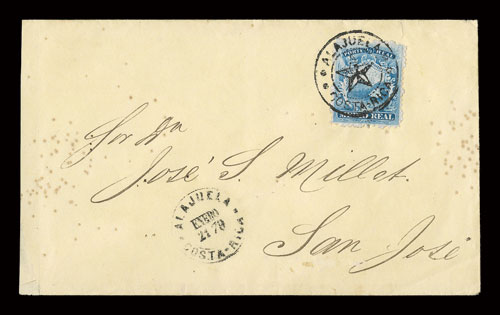 ALAJUELA
COSTA-RICA
MEDIO REAL
José S. Millet.
San José
ALAJUELA
ENERO
21 79
COSTA-RICA